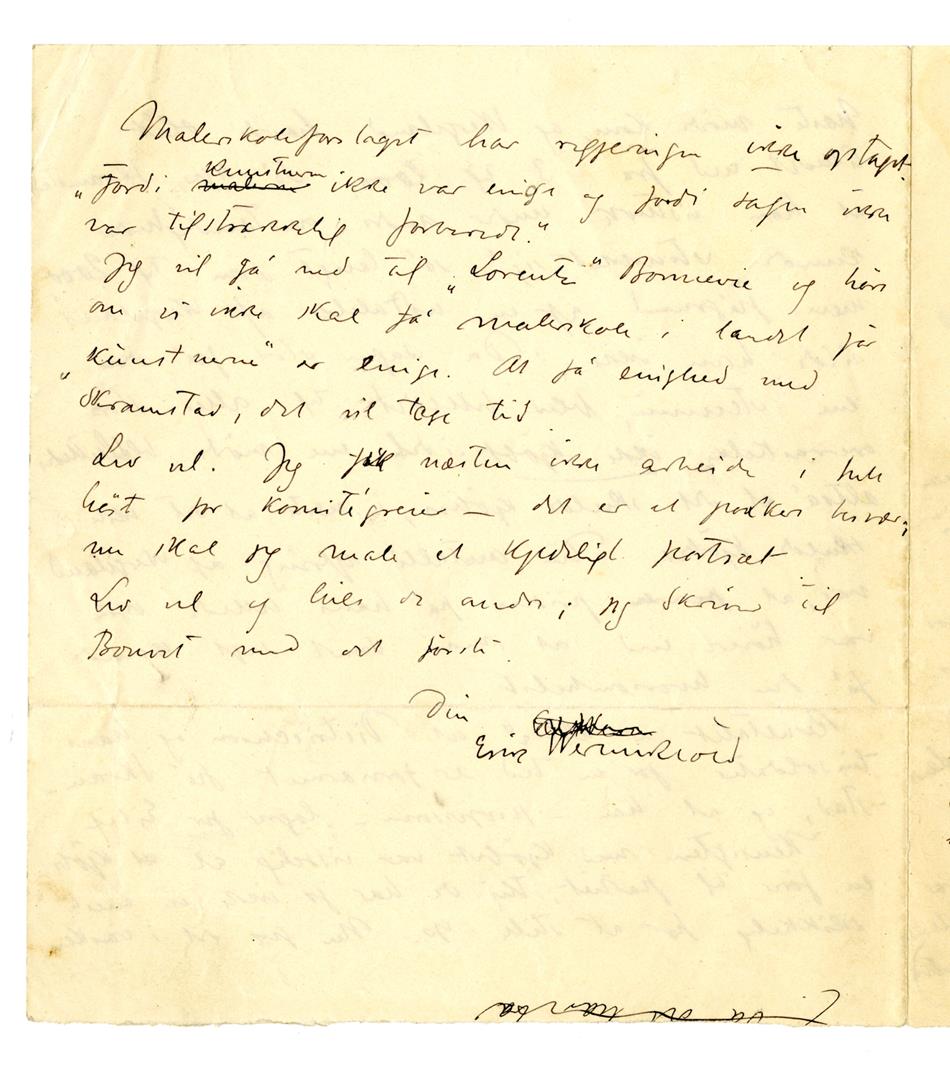 Malerskoleforslaget har regjeringen ikke optaget.
„Fordi malerne kunstnerne ikke var enige og fordi sagen ikke
var tilstrækkelig forberedt.“
Jeg vil gå ned til „Lorentz“ Bonnevie og høre
om vi ikke skal få malerskole i landet før
„kunstnerne“ er enige. At få enighed med
Skramstad, det vil tage tid.
Lev vel. Jeg fik næsten ikke arbeide i hele
høst for komitégreier – det er et pokkers besvær;
nu skal jeg male et kjedeligt portræt
Lev vel og hils de andre; jeg skriver til
med det første.
Din
Erik Werenskiold